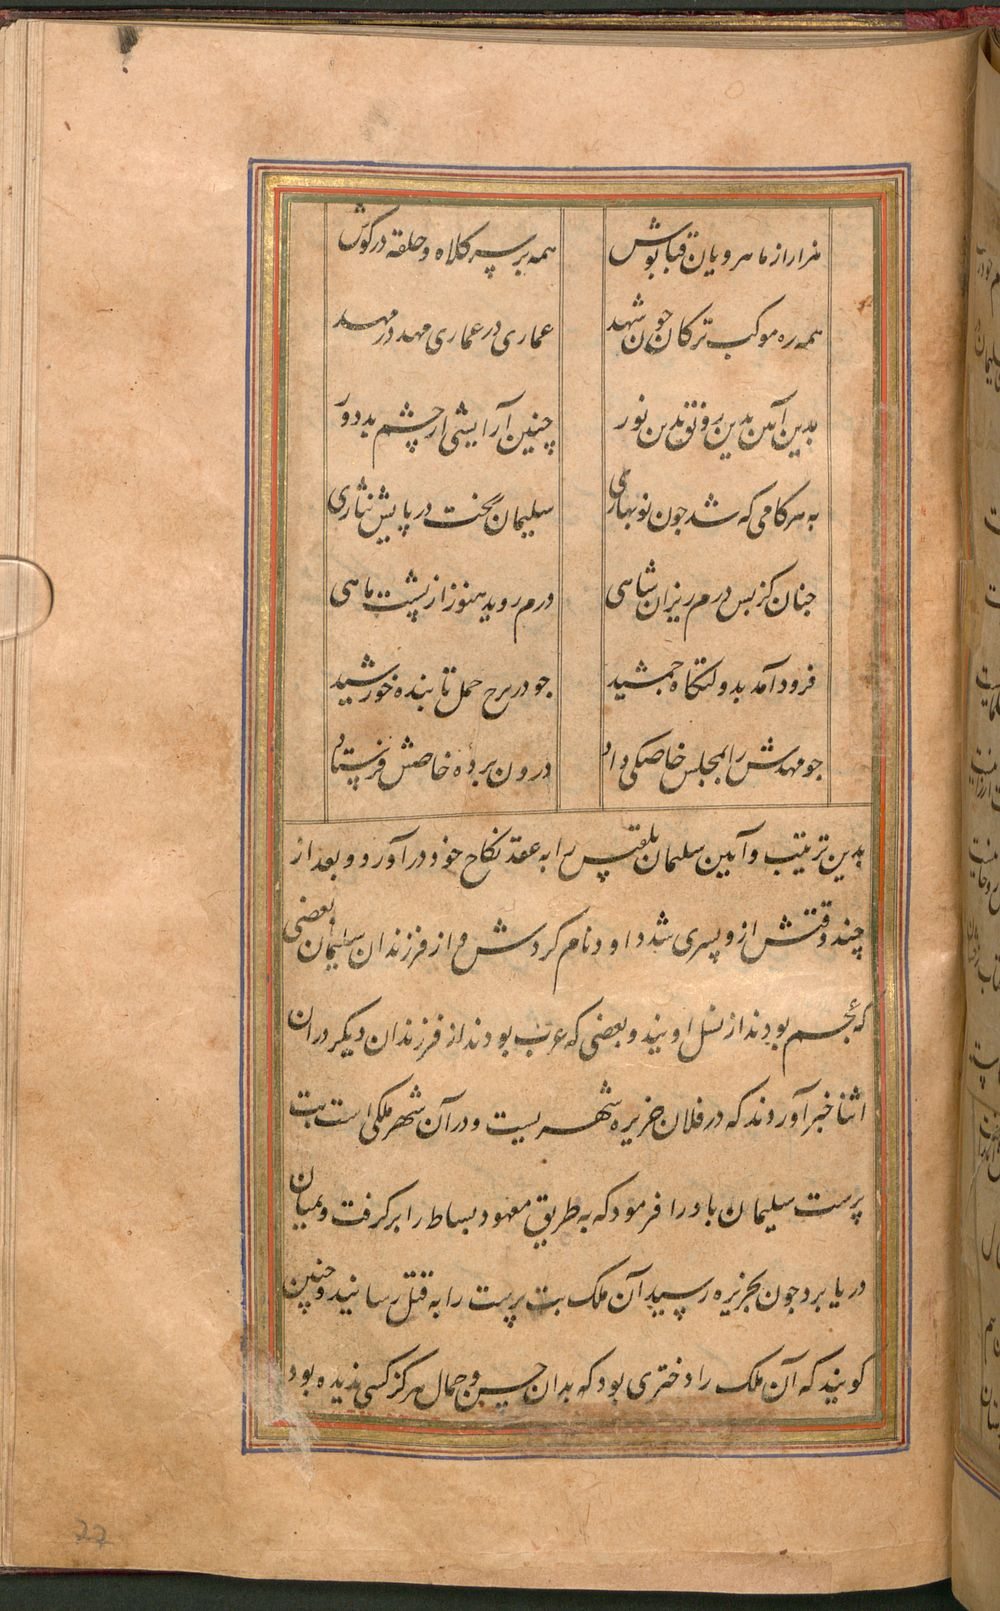 هزار از ماهرویان قباپوش همه بر سر کلاه و حلقه در گوش
همه ره موکب ترکان جون شهد عماری در عماری مهد در مهد
بدین آیین بدین رونق بدین نور چنین آرایشی از چشم بد دور
به هر کامی که شد جون نوبهاری سلیمان ریخت در پایش نثاری
جنان کز بس درم ریزان شاهی درم روید هنوز از پشت ماهی
فرود آمد بدولتکاه جمشید جو در برج حمل تابنده خورشید
جو مهدش را بمجلس خاصکی داد درون برده خاصش فرستاد
بدین ترتیب و آیین سلیمان بلقیس را به عقد نکاح خود درآورد و بعد از
چند وقتش ازو پسری شد داود نام کردش و از فرزندان سلیمان بعضی
که عجم بودند از نسل اویند و بعضی که عرب بودند از فرزندان دیکر دران
اثنا خبر آوردند که در فلان جزیره شهریست و در آن شهر ملکی است بت
پرست سلیمان باد را فرمود که به طریق معهود بساط را برکرفت و بمیان
دریا برد جون بجزیره رسید آن ملک بت پرست را به قتل رسانید و چنین
کویند که آن ملک را دختری بود که بدان حسن و جمال هرکز کسی ندیده بود
22